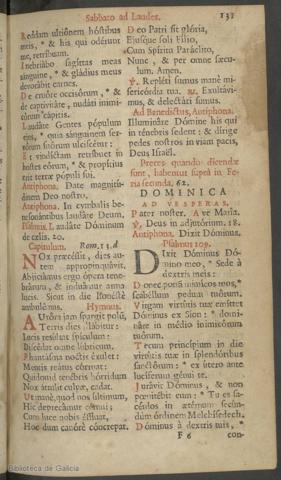 Sabbato ad Laudes. 131
Reddam ultiónem hóstibus
meis, * & his qui odérunt
me, retribuam.
Inebriábo sagittas meas
sánguine, * & gládius meus
devorábit carnes.
De cruóre occisórum, * &
de captivitáte, nudáti inimi-
córum cápitis.
Laudáte Gentes pópulum
ejus, * quia sánguinem ser-
vórum suórum ulciscétur:
Et vindictam retríbuet in
hostes eórum, * & propítius
erit terræ pópuli sui.
Antiphona. Date magnitú-
dinem Deo nostro.
Antiphona. In cymbalis be-
nesonántibus laudáte Deum.
Psalmus. Laudáte Dóminum
de cælis. 20.
Capitulum. Rom. 13. d
NOx præcéssit, dies au-
tem appropinquávit.
Abjiciámus ergo ópera tene-
brárum, & induámur arma
lucis. Sicut in die honéstè
ambulémus. Hymnus.
AUróra jam spargit polum,
Terris dies illábitur:
Lucis resúltat spículum:
Discédat omne lúbricum.
Phantásma noctis éxulet:
Mentis reátus córruat:
Quidquid ténebris hórridum
Nox áttulit culpæ, cadat.
Ut mané, quod nos últimum,
Hic deprecámur cérnui;
Cum luce nobis éffluat,
Hoc dum canóre cóncrepat.
Deo Patri sit glória,
Ejúsque soli Fílio,
Cum Spíritu Paráclito,
Nunc, & per omne sæcu-
lum. Amen.
℣. Repléti sumus manè mi-
sericórdia tua. ℟. Exultávi-
mus, & delectáti sumus.
Ad Benedictus, Antiphona.
Illumináre Dómine his qui
in ténebris sedent: & dírige
pedes nostros in viam pacis,
Deus Israël.
Preces quando dicendæ
sunt, habentur suprà in Fe-
ria secunda, 62.
DOMINICA
AD VESPERAS.
Pater noster. Ave María.
℣. Deus in adjutórium. 18.
Antiphona. Dixit Dóminus.
Psalmus 109.
DIxit Dóminus Dó-
mino meo, * Sede à
dextris meis:
Donec ponam inimícos tuos, *
scabéllum pedum tuórum.
Virgam virtútis tuæ emíttet
Dóminus ex Sion: * domi-
náre in médio inimicórum
tuórum.
Tecum princípium in die
virtútis tuæ in splendóribus
sanctórum: * ex útero ante
lucíferum génui te.
Jurávit Dóminus, & non
pœnitébit eum: * Tu es sa-
cérdos in ætérnum secún-
dùm órdinem Melchísedech.
Dóminus à dextris tuis, *
F 6 con-
Biblioteca de Galicia